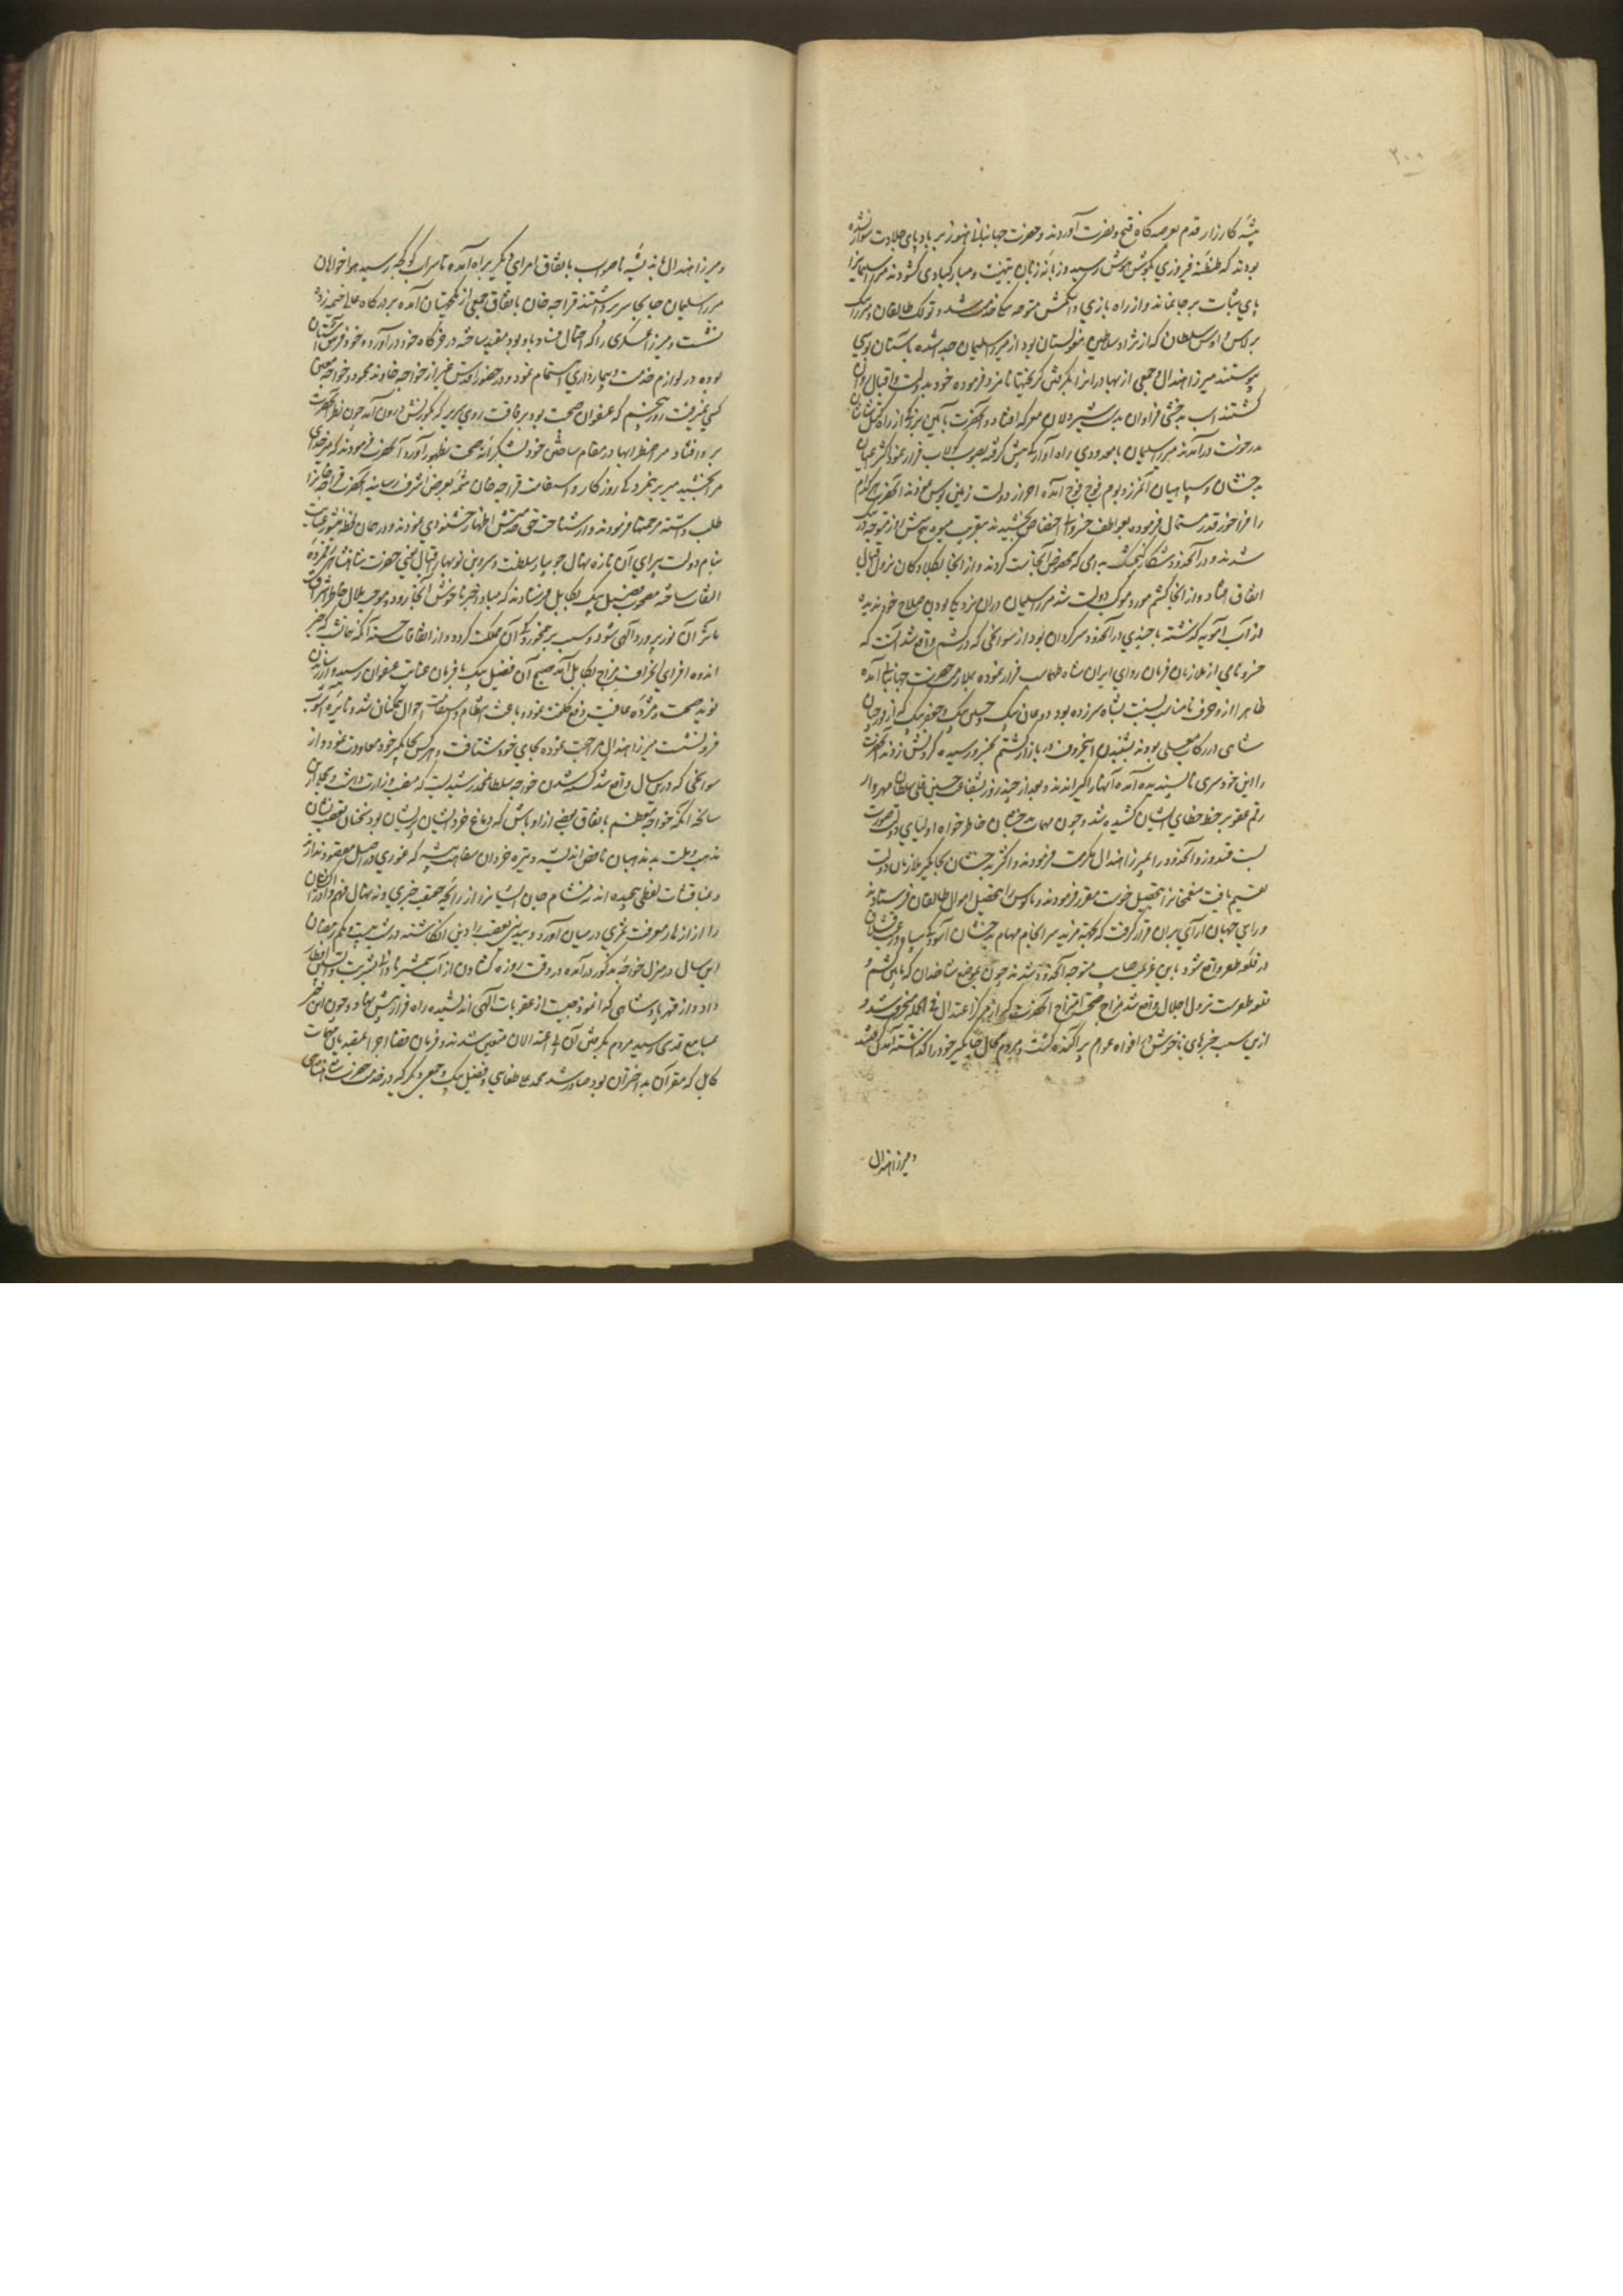 ۲۰۰
بیشهٔ کارزار قدم بعرصه‌گاه فتح و نصرت آوردند و حضرت جهانبانی هنوز بر بادپای جلادت سوار نشده
بودند که طنطنهٔ فیروزی بگوش هوش رسید و زبانهٔ زبان بتهنیت و مبارکبادی گشودند میرزا سلیمان را
پای ثبات بر جا نماند و از راه باری و اشکمش متوجه شد و تولک طالقانی و میرزا بیک
برلاس و اویس سلطان که از نژاد سلاطین مغولستان بود از میرزا سلیمان جدا شده بآستان بوسی
پیوستند میرزا هندال و جمعی از بهادران را بگرفتن گریختها نامزد فرموده خود بدولت و اقبال روان
گشتند اسب بدخشی فراوان بدست شیردلان معرکه افتاد و آنحضرت بآیین بزرگی از راه
در خوست درآمدند میرزا سلیمان با معدودی راه آوارگی پیش گرفته بصوب کولاب فرار نمود اکثر اعیان
بدخشان و سپاهیان آن مرز و بوم فوج فوج آمده احراز دولت زمین بوس نمودند آنحضرت هر کدام
را فراخور قدر استمالت فرموده بعواطف خسروانه اختصاص بخشیدند بتقریب میوه
شدند و در آنحدود شکار کبک بدامی که مخصوص آنجاست کردند و از آنجا بکلاوکان نزول اقبال
اتفاق افتاد و از آنجا کشم مورد موکب دولت شد میرزا سلیمان دران نزدیکی بودن صلاح خود ندیده
از آب آمویه گذشته با چندی در آنحدود سرگردان بود از سوانحی که در کشم واقع شد آنست که
خسرو نامی از ملازمان فرمان روای ایران شاه طهماسب فرار نموده بملازمت حضرت جهانبانی آمده
ظاهرا ازو حرف نامناسب نسبت بشاه سرزده بود دو عالی بیک و حسن بیک و جعفر بیک که از قورچیان
شاهی در رکاب معلی بودند بشنیدن این حرف در بازار کشم بخسرو رسیده گردنش زدند آنحضرت
را این خودسری ناپسندیده آمده آنها را گیراندند و بعد از چند روز بشفاعت حسین قلی سلطان مهردار
رقم عفو بر خط خطای ایشان کشیده شد و چون مهمات بدخشان خاطر خواه اولیای دولت صورت
بست قندوز و آنحدود را بمیرزا هندال مکرمت فرمودند و اکثر بدخشان بجاگیر ملازمان دولت
تقسیم یافت منعم خان را بتحصیل خوست مقرر فرمودند و بابوس را بتحصیل اموال طالقان فرستادند
و رای جهان آرای بران قرار گرفت که بجهت مزید سرانجام مهام بدخشان و آسودگی سپاه و رعیت قشلاق
در قلعه ظفر واقع شود باین عزیمت صایب متوجه آنحدود شدند چون بموضع شاخدان که مابین کشم و
قلعه ظفرست نزول اجلال واقع شد مزاج صحت امتزاج آنحضرت از مرکز اعتدال فی الجمله منحرف شد و
ازین سبب خبرهای ناخوش در افواه عوام پراگنده گشت و مردم محال جاگیر خود را گذاشته آمدن گرفتند
و میرزا هندال
و میرزا هندال باندیشهٔ ناصواب باتفاق امرای دیگر براه آمده تا سراب کوکچه رسید هواخواهان
میرزا سلیمان جابجا سر برداشتند قراچه خان باتفاق جمعی از یکجهتان آمده بر درگاه معلی خیمه زده
نشست و میرزا عسکری را که احتمال فساد باو بود مقید ساخته در خرگاه خود درآورد و خود فرش آستان
بوده در لوازم خدمت و بیمارداری اهتمام نمود و در حضور اقدس غیر از خواجه خاوند محمود و خواجه معین
کسی نمیرفت روز پنجم که عنفوان صحت بود میر برکه که بکورنش درون آمد چون نظر آنحضرت
برو افتاد میر اضطرابها در مقام ساختن خود بشکرانه صحت بظهور آورد آنحضرت فرمودند که میر خدای
مرا بخشید میر مجرد روزگار و استقامت قراچه خان شمهٔ بعرض اشرف رسانید آنحضرت قراچه خان را
طلب داشته مرحمتها فرمودند و از شناخت حق خدمتش اظهار خشنودی نمودند و در همان لحظه منشور عنایت
بنام دولت پیرای آن تازه نهال جویبار سلطنت و سروبن نوبهار اقبال یعنی حضرت شاهنشاهی
التفات ساخته مصحوب فضیل بیک بکابل فرستادند که مبادا خبر ناخوش آنجا رود و موجب ملال خاطر اشرف
شود و سبب برهمخوردگی آن مملکت گردد و از اتفاقات حسنه آنکه شبانگاه خبر
اندوه افزای انحراف مزاج بکابل آمد صبح آن فضیل بیک با فرمان عنایت عنوان رسید و رسانیدن
نوید صحت و مژدهٔ عافیت رفع کلفت نمود و باعث انتظام و استقامت احوال همگنان شد و نایرهٔ آشوب
فرو نشست میرزا هندال مراجعت نموده بجای خود شتافت و هر کس بجاگیر خود معاودت نمود و از
سوانحی که درین سال واقع شد کشته شدن خواجه سلطان محمد رشیدیست که منصب وزارت داشت و مجمل این
سانحه آنکه خواجه معظم باتفاق بعضی از اوباش که دماغ خرد ایشان پریشان بود سخنان تعصب نشان
مذهب و ملت بدمذهبان ناقص اندیشه و تیره خردان سفاهت پیشه که غوری در اصل مقصود ندارند
را از ازار معرفت ثمری در میان آورد و بددینی تعصب را دینی انگاشته در شب بیست و یکم رمضان
این سال در منزل خواجه مذکور درآمده در وقت روزه گشادن از آب شمشیر ناروا شربت واپسین
داد و از قهر پادشاهی که انموذجیست از عقوبات الهی اندیشیده راه فرار پیش نهاد و چون این خبر
بمسامع قدسی رسید مردم بگرفتن آن بی اعتدالان متعین شدند و فرمان قضا اجرا بمتقیدان مهمات
کابل که مقر آن بد اختران بود صادر شد محمد علی طغائی و فضیل بیک و جمعی دیگر که در خدمت حضرت شاهنشاهی